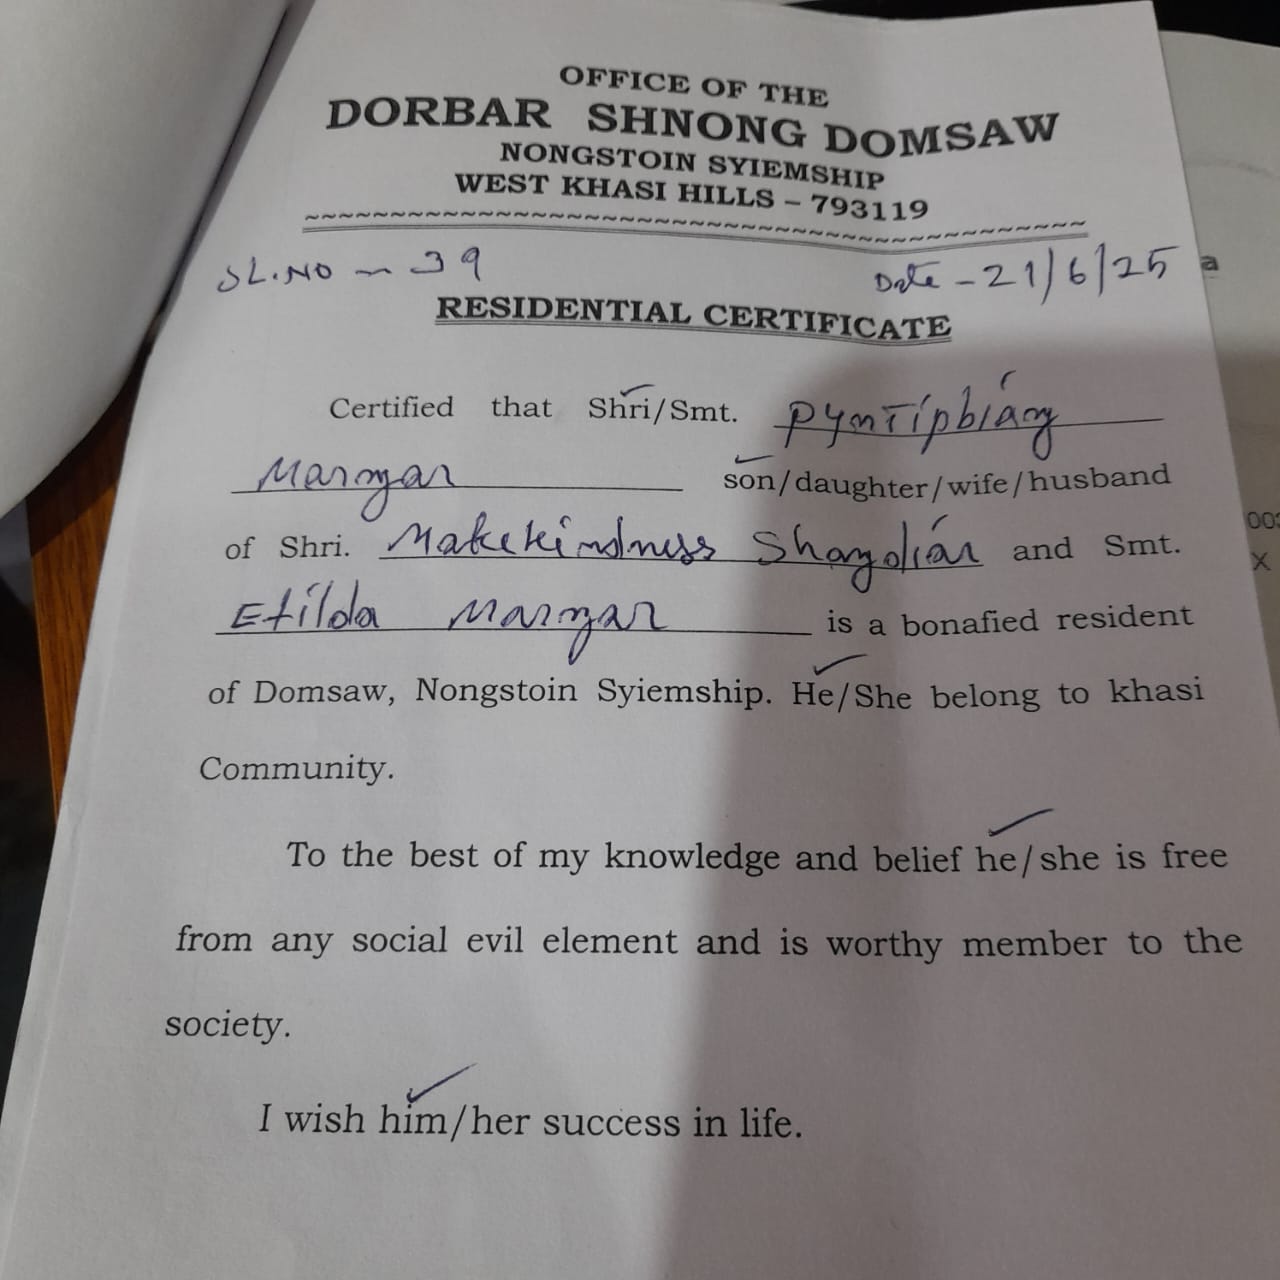 OFFICE OF THE
DORBAR SHNONG DOMSAW
NONGSTOIN SYIEMSHIP
WEST KHASI HILLS – 793119
SL.NO – 39 Date – 21/6/25
RESIDENTIAL CERTIFICATE
Certified that Shri/Smt. Pyntipbiang
Marngar son/daughter/wife/husband
of Shri. Makekindness Shangdiar and Smt.
Etilda Marngar is a bonafied resident
of Domsaw, Nongstoin Syiemship. He/She belong to khasi
Community.
To the best of my knowledge and belief he/she is free
from any social evil element and is worthy member to the
society.
I wish him/her success in life.
a
003
X